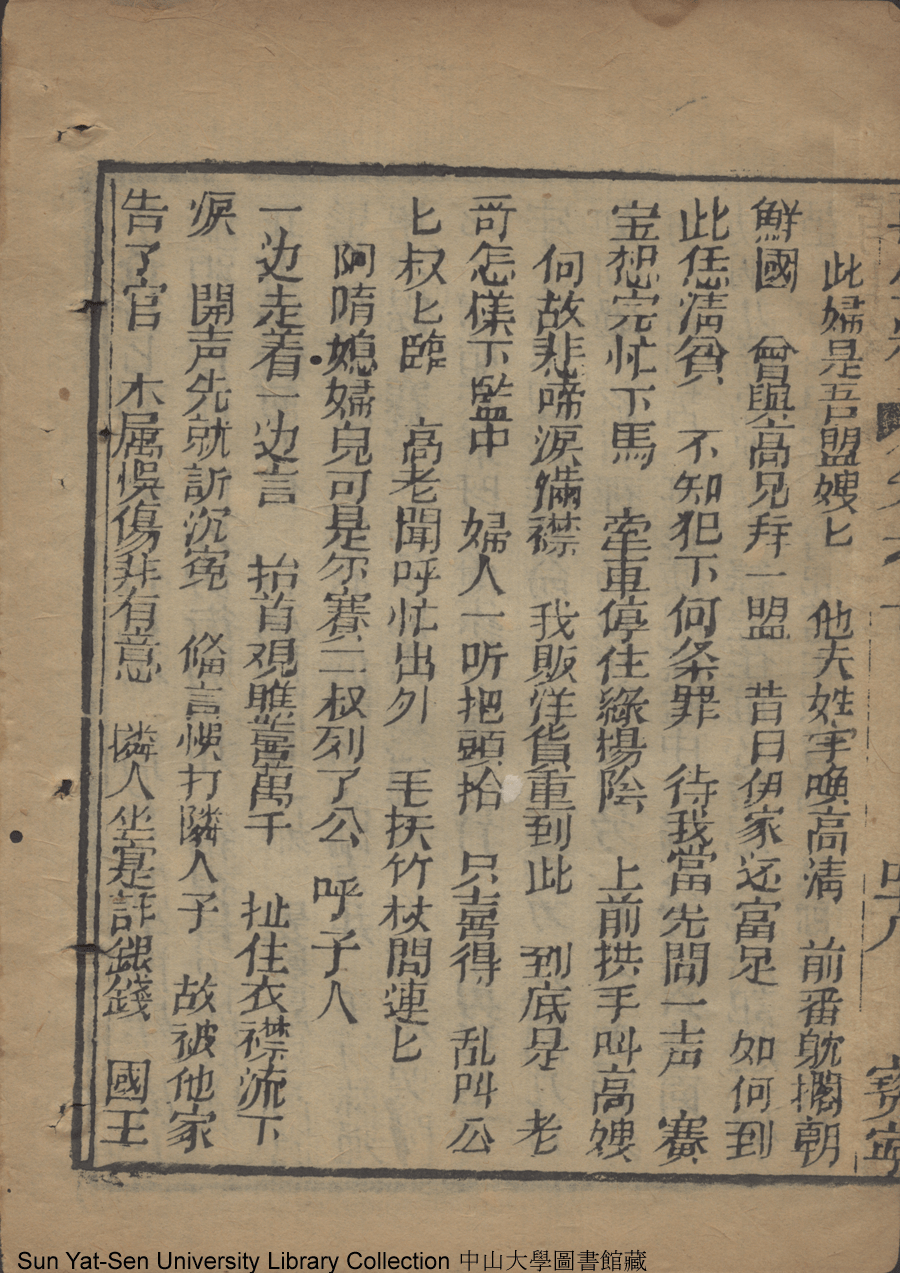 此婦是吾盟嫂匕 他夫姓宇喚高清 前番躭擱朝
鮮國 曾與高兄拜一盟 昔日伊家还富足 如何到
此恁清貧 不知犯下何条罪 待我當先問一声 賽
宝想完忙下馬 牽車停住綠楊陰 上前拱手叫高嫂
何故悲啼淚滿襟 我販洋貨重到此 到底是 老
哥怎樣下監中 婦人一听把頭抬 只喜得 乱叫公
匕叔匕臨 高老聞呼忙出外 毛扶竹杖問連匕
阿唷媳婦兒可是尔賽二叔列了公 呼子人
一边走着一边言 抬首观瞧喜萬千 扯住衣襟流下
淚 開声先就訴沉寃 俻言悞打隣人子 故被他家
告了官 木属悞傷非有意 隣人坐寔詐銀錢 國王
罕八
寳寧
Sun Yat-Sen University Library Collection 中山大學圖書館藏